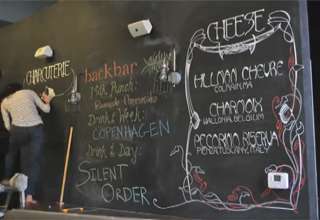 CHARCUTERIE
backbar
19th Punch:
Drink & Week:
COPENHAGEN
Drink & Day:
SILENT
ORDER
CHEESE
HILLMAN CHEVRE
COLRAIN, MA
CHARMOIX
WALLONIA, BELGIUM
PECORINO RISERVA
PIENZA, TUSCANY, ITALY